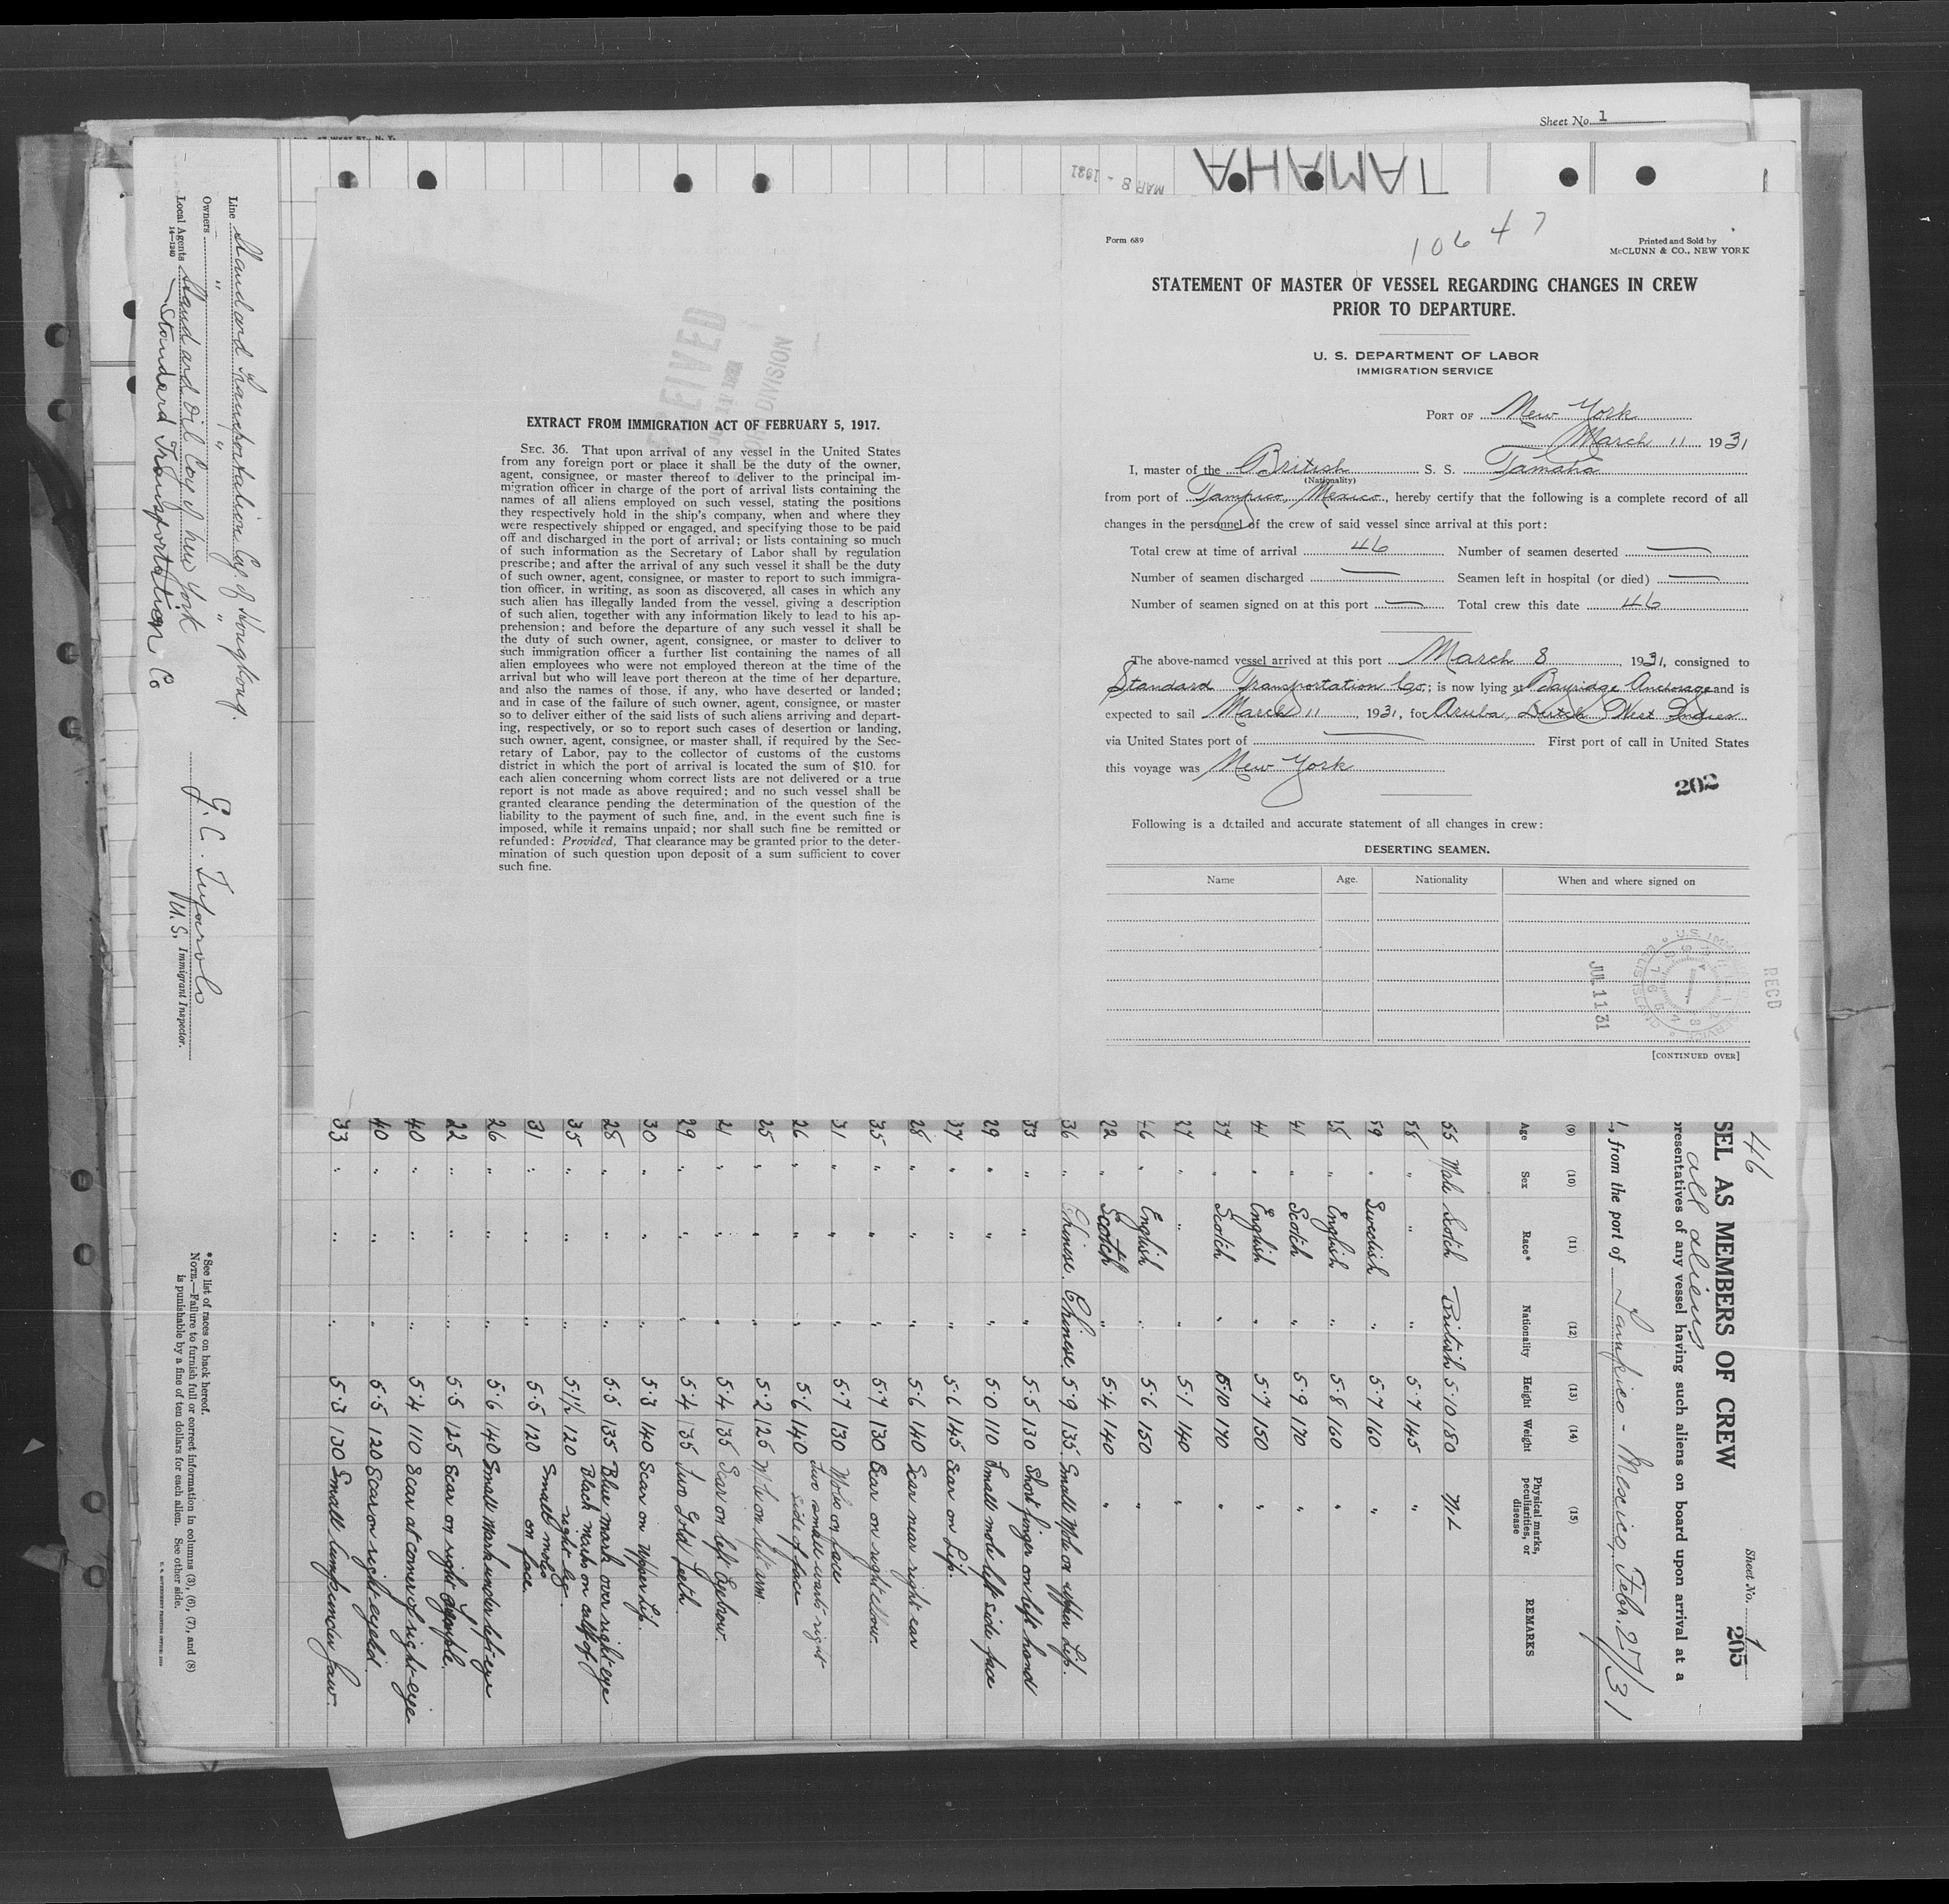 Sheet No. 1
TAMAHA
MAR 8 - 1931
10647
Form 689
Printed and Sold by
McCLUNN & CO., NEW YORK
STATEMENT OF MASTER OF VESSEL REGARDING CHANGES IN CREW
PRIOR TO DEPARTURE.
U. S. DEPARTMENT OF LABOR
IMMIGRATION SERVICE
PORT OF New York
March 11 1931
I, master of the British S. S. Tamaha
(Nationality)
from port of Tampico, Mexico, hereby certify that the following is a complete record of all
changes in the personnel of the crew of said vessel since arrival at this port:
Total crew at time of arrival 46 Number of seamen deserted —
Number of seamen discharged — Seamen left in hospital (or died) —
Number of seamen signed on at this port — Total crew this date 46
The above-named vessel arrived at this port March 8, 1931, consigned to
Standard Transportation Co.; is now lying at Bayridge Anchorage and is
expected to sail March 11, 1931, for Aruba, Dutch West Indies
via United States port of — First port of call in United States
this voyage was New York
202
Following is a detailed and accurate statement of all changes in crew:
DESERTING SEAMEN.
Name Age. Nationality When and where signed on
JUL 11 31
RECD
[CONTINUED OVER]
EXTRACT FROM IMMIGRATION ACT OF FEBRUARY 5, 1917.
SEC. 36. That upon arrival of any vessel in the United States
from any foreign port or place it shall be the duty of the owner,
agent, consignee, or master thereof to deliver to the principal im-
migration officer in charge of the port of arrival lists containing the
names of all aliens employed on such vessel, stating the positions
they respectively hold in the ship's company, when and where they
were respectively shipped or engaged, and specifying those to be paid
off and discharged in the port of arrival; or lists containing so much
of such information as the Secretary of Labor shall by regulation
prescribe; and after the arrival of any such vessel it shall be the duty
of such owner, agent, consignee, or master to report to such immigra-
tion officer, in writing, as soon as discovered, all cases in which any
such alien has illegally landed from the vessel, giving a description
of such alien, together with any information likely to lead to his ap-
prehension; and before the departure of any such vessel it shall be
the duty of such owner, agent, consignee, or master to deliver to
such immigration officer a further list containing the names of all
alien employees who were not employed thereon at the time of the
arrival but who will leave port thereon at the time of her departure,
and also the names of those, if any, who have deserted or landed;
and in case of the failure of such owner, agent, consignee, or master
so to deliver either of the said lists of such aliens arriving and depart-
ing, respectively, or so to report such cases of desertion or landing,
such owner, agent, consignee, or master shall, if required by the Sec-
retary of Labor, pay to the collector of customs of the customs
district in which the port of arrival is located the sum of $10. for
each alien concerning whom correct lists are not delivered or a true
report is not made as above required; and no such vessel shall be
granted clearance pending the determination of the question of the
liability to the payment of such fine, and, in the event such fine is
imposed, while it remains unpaid; nor shall such fine be remitted or
refunded: Provided, That clearance may be granted prior to the deter-
mination of such question upon deposit of a sum sufficient to cover
such fine.
46
Sheet No. 1
205
SEL AS MEMBERS OF CREW
all aliens
presentatives of any vessel having such aliens on board upon arrival at a
, from the port of Tampico - Mexico, Febr. 27/31
(9) (10) (11) (12) (13) (14) (15)
Age Sex Race* Nationality Height Weight Physical marks, peculiarities, or disease REMARKS
55 Male Scotch British 5·10 180 NIL
58 " " " 5·7 145 "
59 " Swedish " 5·7 160 "
" English " 5·8 160 "
41 " Scotch " 5·9 170 "
41 " English " 5·7 150 "
37 " Scotch " 5·10 170 "
27 " " " 5·1 140 "
46 " English " 5·6 150 "
22 " Scotch " 5·4 140 "
36 " Chinese Chinese 5·9 135 Small Mole on upper Lip.
33 " " " 5·5 130 Short finger on left hand
29 " " " 5·0 110 Small mole left side face
37 " " " 5·6 145 Scar on Lip.
28 " " " 5·6 140 Scar near right ear
35 " " " 5·7 130 Scar on right elbow.
31 " " " 5·7 130 Mole on face
26 " " " 5·6 140 Two small warts right side of face
25 " " " 5·2 125 Mole on left arm.
21 " " " 5·4 135 Scar on left Eyebrow.
29 " " " 5·4 135 Two Gold Teeth.
30 " " " 5·3 140 Scar on Upper Lip.
28 " " " 5·5 135 Blue mark over right eye
35 " " " 5·1½ 120 Black marks on calf of right leg.
31 " " " 5·5 120 Small moles on face.
26 " " " 5·6 140 Small Mark under left eye
22 " " " 5·5 125 Scar on right temple.
40 " " " 5·4 110 Scar at corner of right eye.
40 " " " 5·5 120 Scar on right eyelid.
33 " " " 5·3 130 Small lump under jaw.
Line Standard Transportation Coy. of Hongkong.
Owners " " "
Local Agents Standard Oil Coy of New York
14—1240
Standard Transportation Co
U.S. Immigrant Inspector.
*See list of races on back hereof.
NOTE.—Failure to furnish full or correct information in columns (3), (6), (7), and (8)
is punishable by a fine of ten dollars for each alien. See other side.